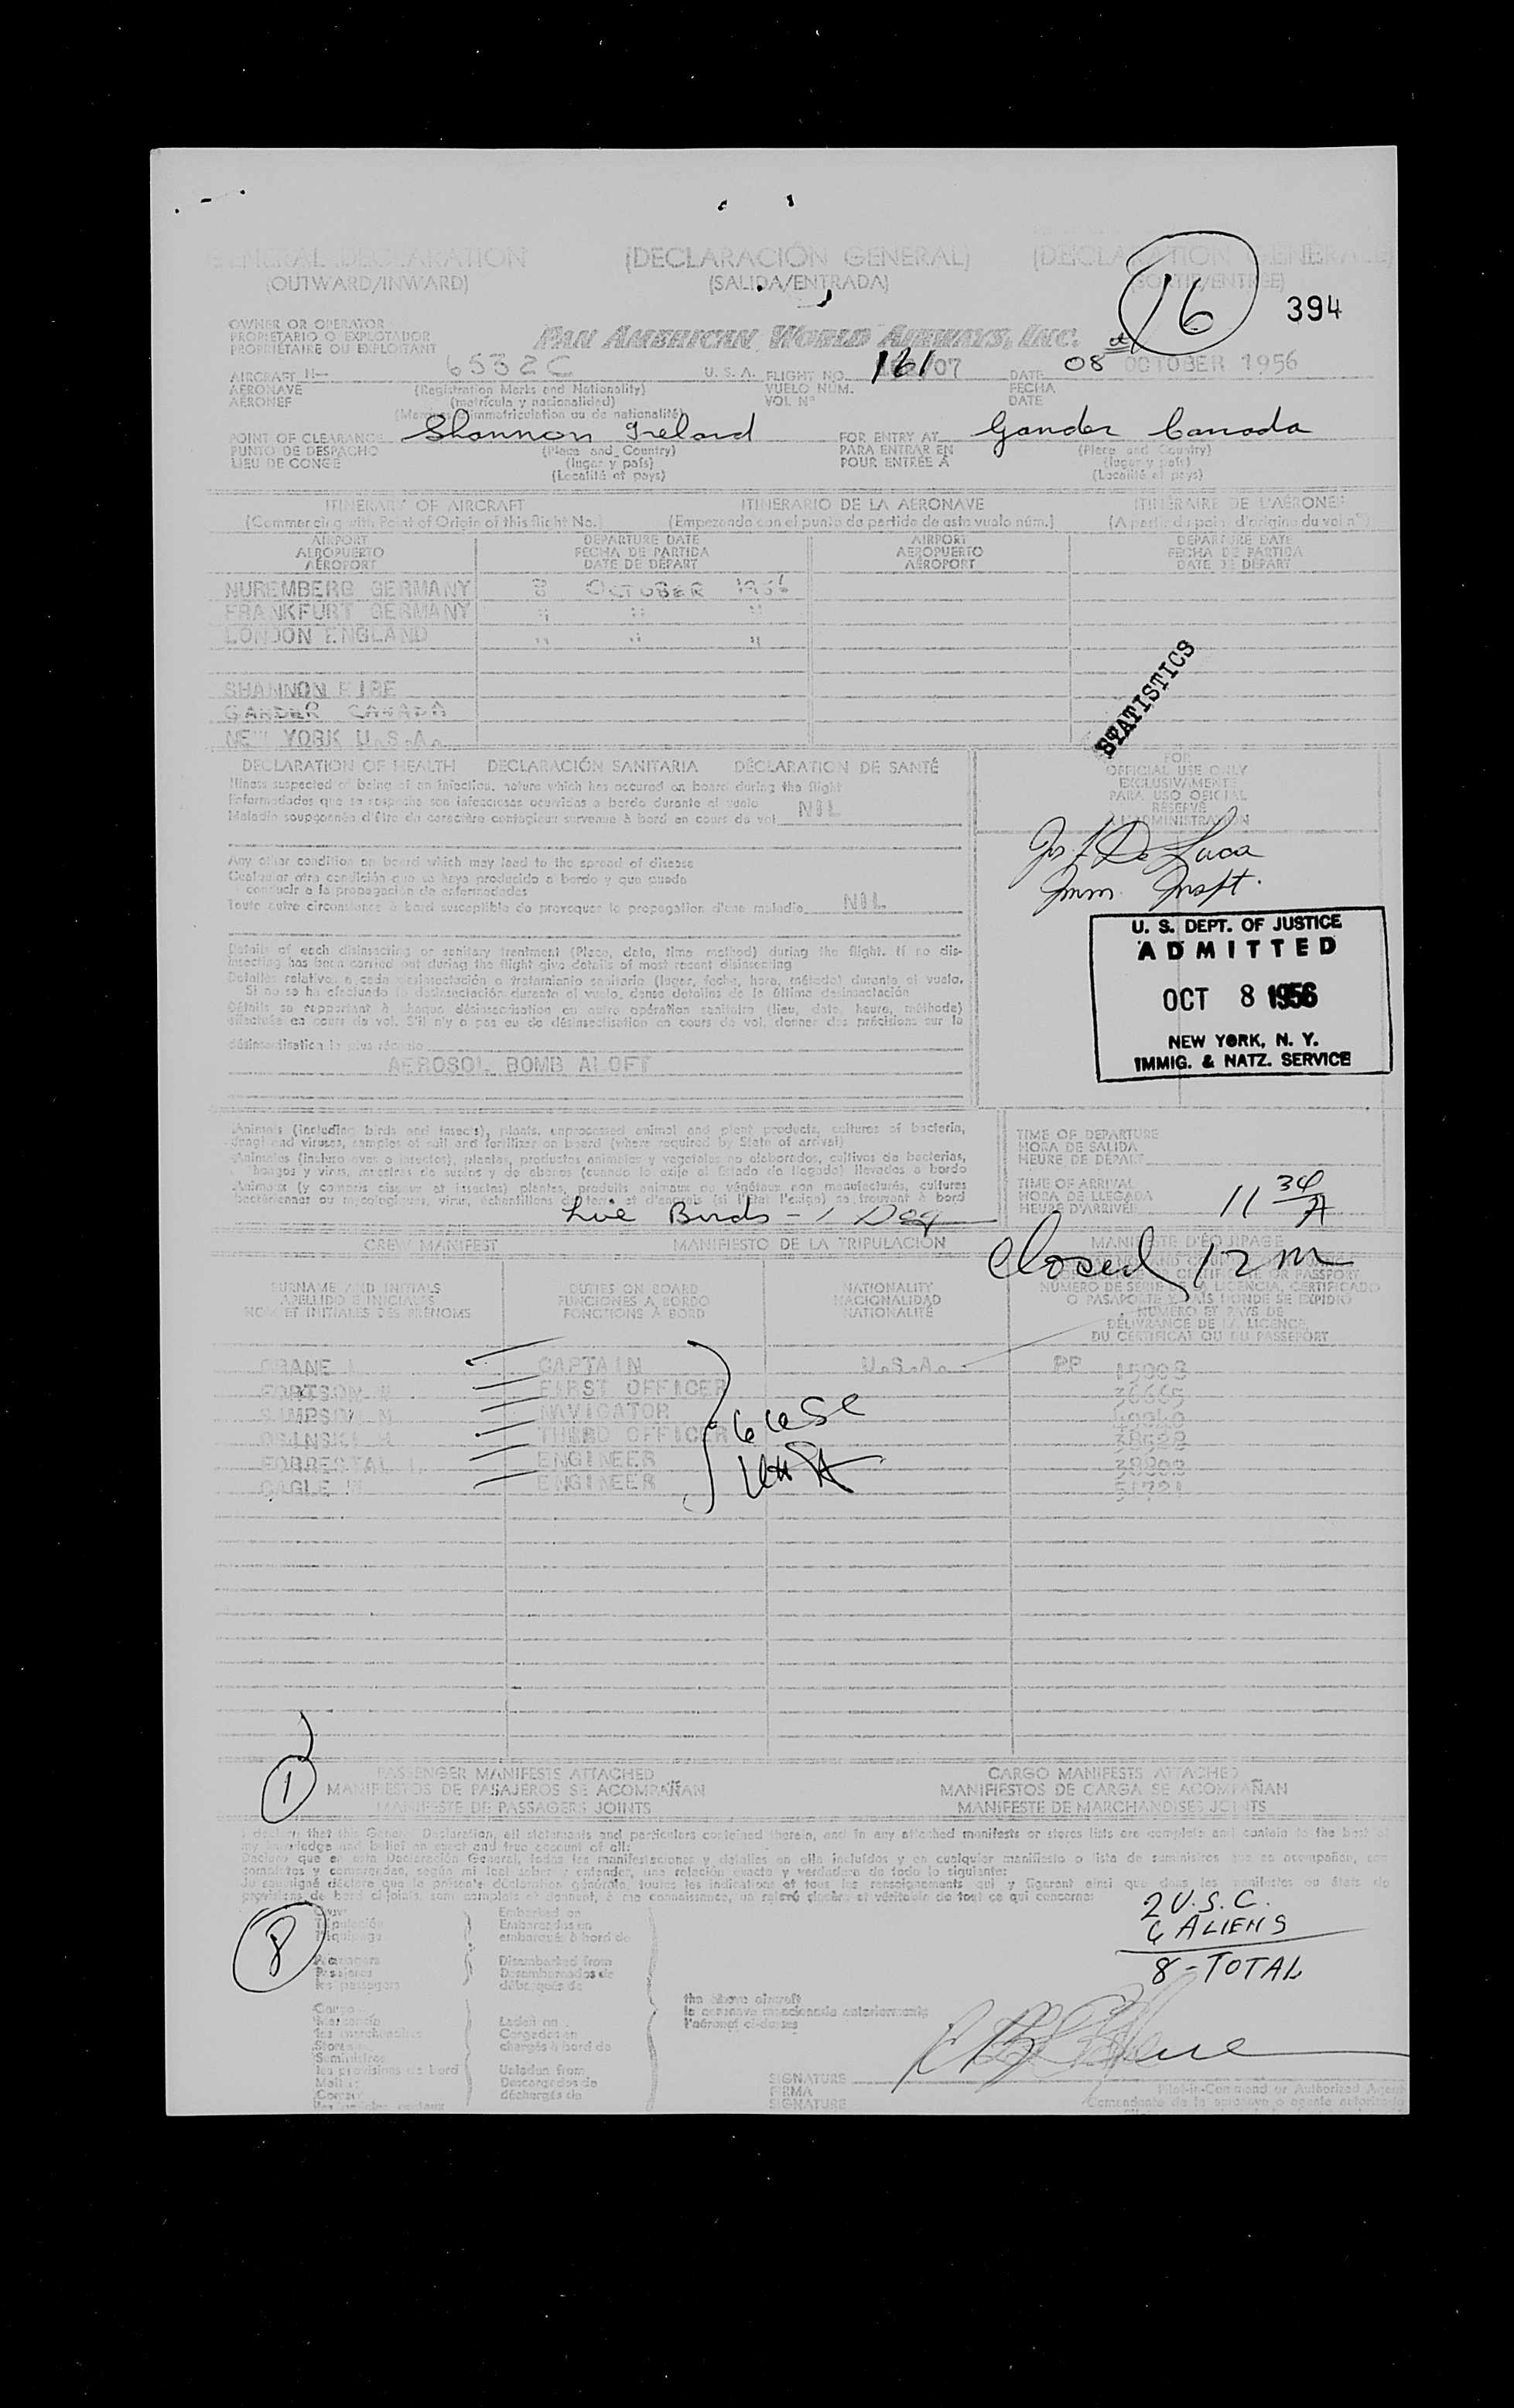 GENERAL DECLARATION (DECLARACIÓN GENERAL) (DECLARATION GENERALE)
(OUTWARD/INWARD) (SALIDA/ENTRADA) (SORTIE/ENTREE)
16 394
OWNER OR OPERATOR
PROPIETARIO O EXPLOTADOR
PROPRIÉTAIRE OU EXPLOITANT
PAN AMERICAN WORLD AIRWAYS, INC.
AIRCRAFT N— 6532C U.S.A. FLIGHT NO. 161/07 DATE 08 OCTOBER 1956
AERONAVE (Registration Marks and Nationality) VUELO NÚM. FECHA
AÉRONEF (matrícula y nacionalidad) VOL Nº DATE
(Marques d'immatriculation ou de nationalité)
POINT OF CLEARANCE Shannon Ireland FOR ENTRY AT Gander Canada
PUNTO DE DESPACHO (Place and Country) PARA ENTRAR EN (Place and Country)
LIEU DE CONGÉ (lugar y país) POUR ENTRÉE À (lugar y país)
(Localité et pays) (Localité et pays)
ITINERARY OF AIRCRAFT ITINERARIO DE LA AERONAVE ITINÉRAIRE DE L'AÉRONEF
(Commencing with Point of Origin of this flight No.) (Empezando con el punto de partida de este vuelo núm.) (A partir du point d'origine du vol nº)
AIRPORT DEPARTURE DATE AIRPORT DEPARTURE DATE
AEROPUERTO FECHA DE PARTIDA AEROPUERTO FECHA DE PARTIDA
AÉROPORT DATE DE DÉPART AÉROPORT DATE DE DÉPART
NUREMBERG GERMANY 8 OCTOBER 1956
FRANKFURT GERMANY " " "
LONDON ENGLAND " " "
STATISTICS
SHANNON EIRE
GANDER CANADA
NEW YORK U.S.A.
DECLARATION OF HEALTH DECLARACIÓN SANITARIA DÉCLARATION DE SANTÉ
Illness suspected of being of an infectious nature which has occured on board during the flight
Enfermedades que se sospeche son infecciosas ocurridas a bordo durante el vuelo NIL
Maladie soupçonnée d'être de caractère contagieux survenue à bord en cours de vol
FOR
OFFICIAL USE ONLY
EXCLUSIVAMENTE
PARA USO OFICIAL
RÉSERVÉ
À L'ADMINISTRATION
Any other condition on board which may lead to the spread of disease
Cualquier otra condición que se haya producido a bordo y que pueda
conducir a la propagación de enfermedades
Toute autre circonstance à bord susceptible de provoquer la propagation d'une maladie NIL
De Luca
Imm. Inspt.
U. S. DEPT. OF JUSTICE
ADMITTED
OCT 8 1956
NEW YORK, N. Y.
IMMIG. & NATZ. SERVICE
Details of each disinsecting or sanitary treatment (Place, date, time method) during the flight. If no dis-
insecting has been carried out during the flight give details of most recent disinsecting
Detalles relativos a cada desinsectación o tratamiento sanitario (lugar, fecha, hora, método) durante el vuelo.
Si no se ha efectuado la desinsectación durante el vuelo, dense detalles de la última desinsectación
Détails se rapportant à chaque désinsectisation ou autre opération sanitaire (lieu, date, heure, méthode)
effectuée en cours de vol. S'il n'y a pas eu de désinsectisation en cours de vol, donner des précisions sur la
désinsectisation la plus récente
AEROSOL BOMB ALOFT
Animals (including birds and insects), plants, unprocessed animal and plant products, cultures of bacteria,
fungi and viruses, samples of soil and fertilizer on board (where required by State of arrival)
Animales (incluso aves e insectos), plantas, productos animales y vegetales no elaborados, cultivos de bacterias,
hongos y virus, muestras de suelos y de abonos (cuando lo exija el Estado de llegada) llevados a bordo
Animaux (y compris oiseaux et insectes) plantes, produits animaux ou végétaux non manufacturés, cultures
bactériennes ou mycologiques, virus, échantillons de terre et d'engrais (si l'État l'exige) se trouvant à bord
Live Birds - 1 Dog
TIME OF DEPARTURE
HORA DE SALIDA
HEURE DE DÉPART
TIME OF ARRIVAL
HORA DE LLEGADA
HEURE D'ARRIVÉE
11 34 A
Closed 12 m
CREW MANIFEST MANIFIESTO DE LA TRIPULACIÓN MANIFESTE D'ÉQUIPAGE
SURNAME AND INITIALS DUTIES ON BOARD NATIONALITY
APELLIDO E INICIALES FUNCIONES A BORDO NACIONALIDAD
NOM ET INITIALES DES PRÉNOMS FONCTIONS À BORD NATIONALITÉ
NÚMERO DE SERIE DE LA LICENCIA, CERTIFICADO
O PASAPORTE Y PAÍS DONDE SE EXPIDIÓ
NUMÉRO ET PAYS DE
DÉLIVRANCE DE LA LICENCE,
DU CERTIFICAT OU DU PASSEPORT
CRANE CAPTAIN U.S.A. PP
FIRST OFFICER
SIMPSON M NAVIGATOR
OSINSKI THIRD OFFICER
FORRESTAL ENGINEER
CAGLE ENGINEER 51721
6 USC
1
PASSENGER MANIFESTS ATTACHED CARGO MANIFESTS ATTACHED
MANIFIESTOS DE PASAJEROS SE ACOMPAÑAN MANIFIESTOS DE CARGA SE ACOMPAÑAN
MANIFESTE DE PASSAGERS JOINTS MANIFESTE DE MARCHANDISES JOINTS
I declare that this General Declaration, all statements and particulars contained therein, and in any attached manifests or stores lists are complete and contain to the best of
my knowledge and belief an exact and true account of all:
Declaro que en esta Declaración General, todas las manifestaciones y detalles en ella incluidos y en cualquier manifiesto o lista de suministros que se acompañan, son
completos y comprenden, según mi leal saber y entender, una relación exacta y verdadera de todo lo siguiente:
Je soussigné déclare que la présente déclaration générale, toutes les indications et tous les renseignements qui y figurent ainsi que dans les manifestes ou états de
provisions de bord ci-joints, sont complets et donnent, à ma connaissance, un relevé sincère et véritable de tout ce qui concerne:
8
Crew Embarked on
Tripulación Embarcados en
l'équipage embarqués à bord de
Passengers Disembarked from
Pasajeros Desembarcados de
les passagers débarqués de
2 U.S.C.
6 ALIENS
8 - TOTAL
the above aircraft
la aeronave mencionada anteriormente
l'aéronef ci-dessus
Cargo Laden on
Mercancía Cargados en
les marchandises chargés à bord de
Stores
Suministros
les provisions de bord Unladen from
Mail Descargados de
Correo déchargés de
SIGNATURE
FIRMA
SIGNATURE
Pilot-in-Command or Authorized Agent
Comandante de la aeronave o agente autorizado